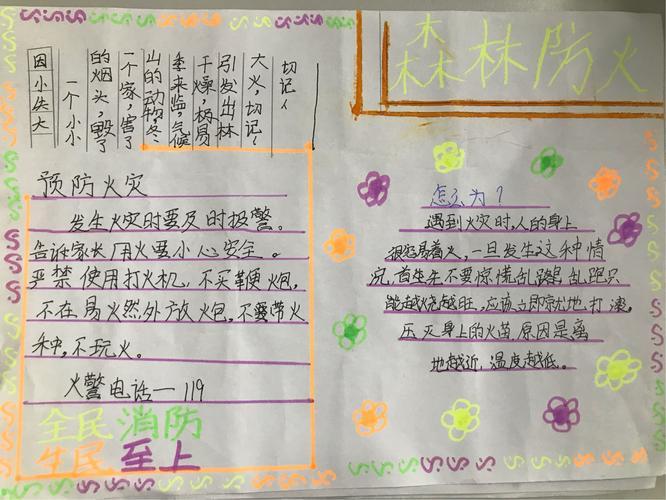 森林防火
因小失大
一个小小
的烟头,毁了
一个家,害了
山的动物,冬
季来临,气候
干燥,极易
引发出林
大火,切记!
切记!
预防火灾
发生火灾时要及时报警。
告诉家长用火要小心安全。
严禁使用打火机,不买鞭炮,
不在易火然外放火炮。不要带火
种,不玩火。
火警电话一119
全民消防
生民至上
怎么为?
遇到火灾时,人的身上
很容易着火,一旦发生这种情
况,首先先不要惊慌乱跑,乱跑只
能越烧越旺,应该立即就地打滚。
压灭身上的火苗,原因是离
地越近,温度越低。